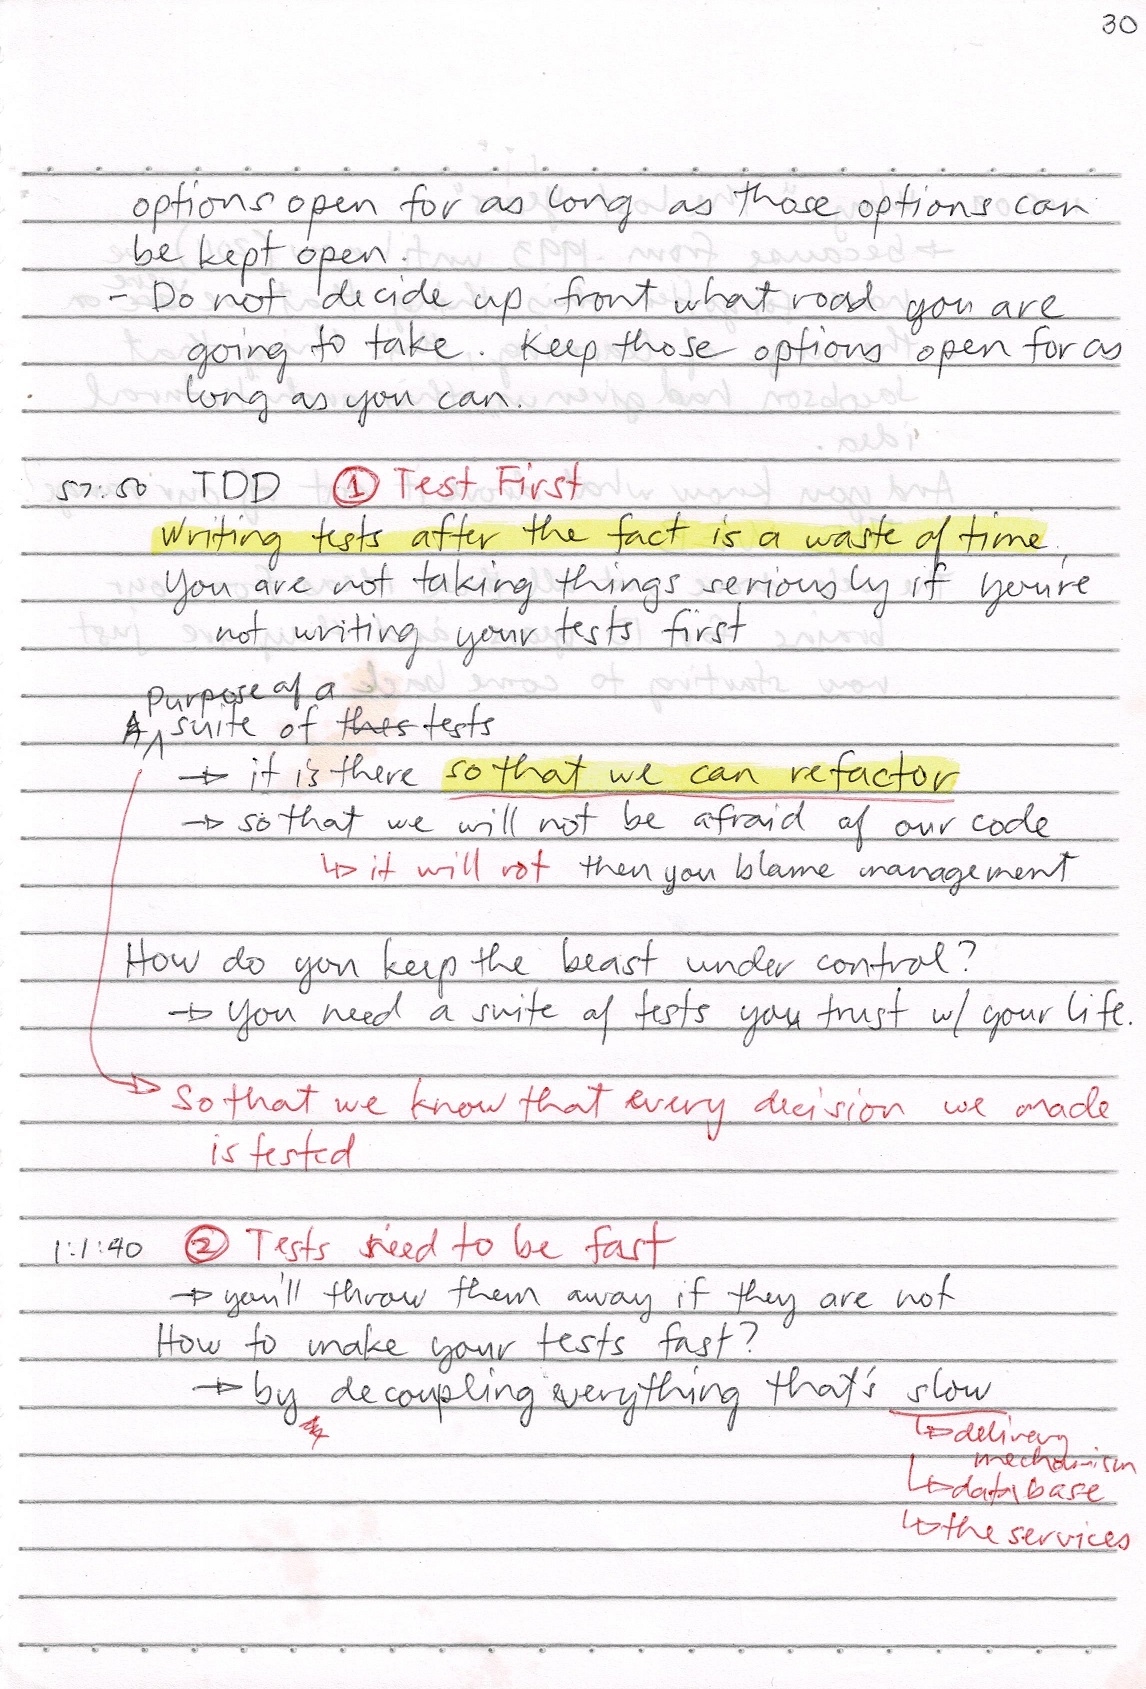 30
options open for as long as those options can
be kept open.
- Do not decide up front what road you are
going to take. Keep those options open for as
long as you can.
57:50 TDD ① Test First
Writing tests after the fact is a waste of time.
You are not taking things seriously if you're
not writing your tests first
Purpose of a
A ^ suite of thes tests
→ it is there so that we can refactor
→ so that we will not be afraid of our code
↳ it will rot then you blame management
How do you keep the beast under control?
→ You need a suite of tests you trust w/ your life.
→ So that we know that every decision we made
is tested
1:1:40 ② Tests need to be fast
→ you'll throw them away if they are not
How to make your tests fast?
→ by decoupling everything that's slow
↳ delivery
mechanism
↳ database
↳ the services